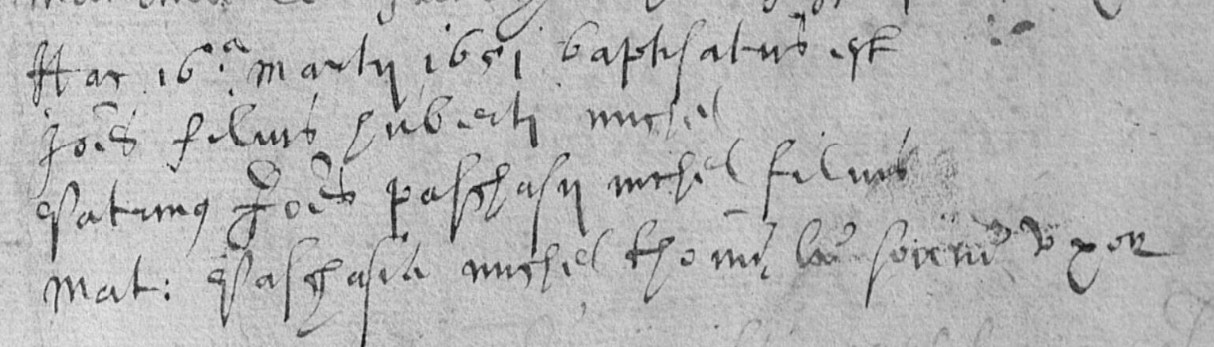 Hac 16.a martij 1651 baptisatus est
Joes filius huberti michel
Patrinus Joes paschasij michel filius
Mat: Paschasia michel thomæ uxor